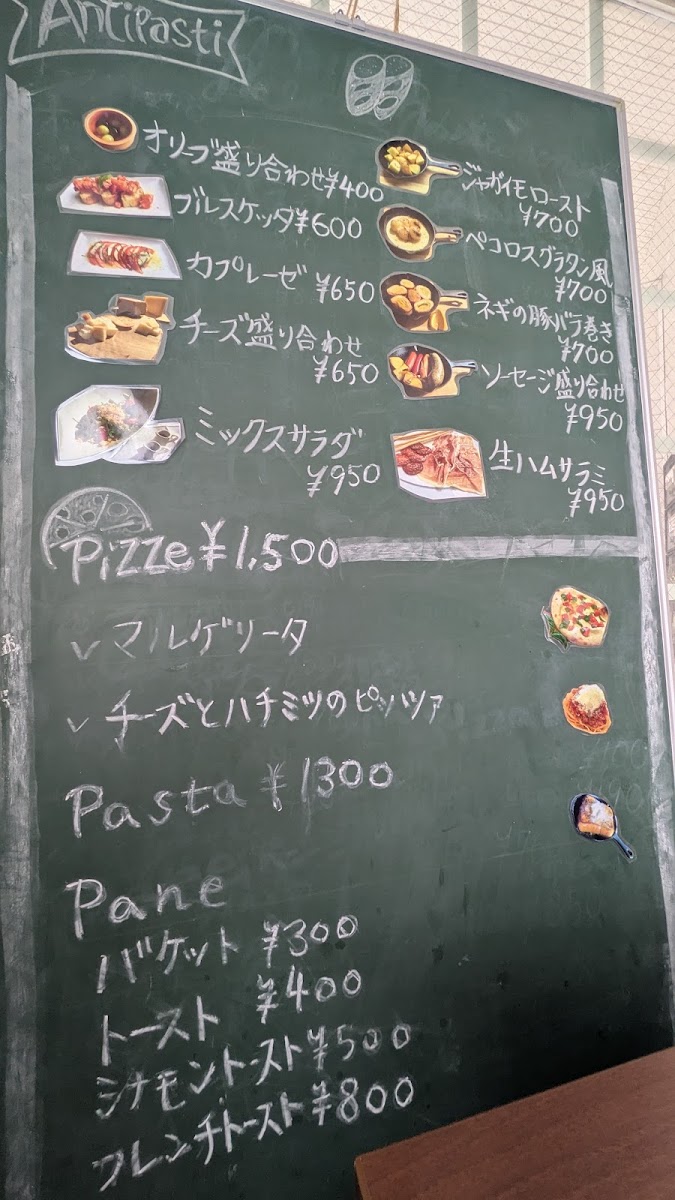 Antipasti
オリーブ盛り合わせ¥400
ブルスケッタ¥600
カプレーゼ ¥650
チーズ盛り合わせ
¥650
ミックスサラダ
¥950
ジャガイモロースト
¥700
ペコログラタン風
¥700
ネギの豚バラ巻き
¥700
ソーセージ盛り合わせ
¥950
生ハムサラミ
¥950
Pizze ¥1,500
✓ マルゲリータ
✓ チーズとハチミツのピッツァ
Pasta ¥1300
Pane
バケット ¥300
トースト ¥400
シナモントースト ¥500
フレンチトースト ¥800